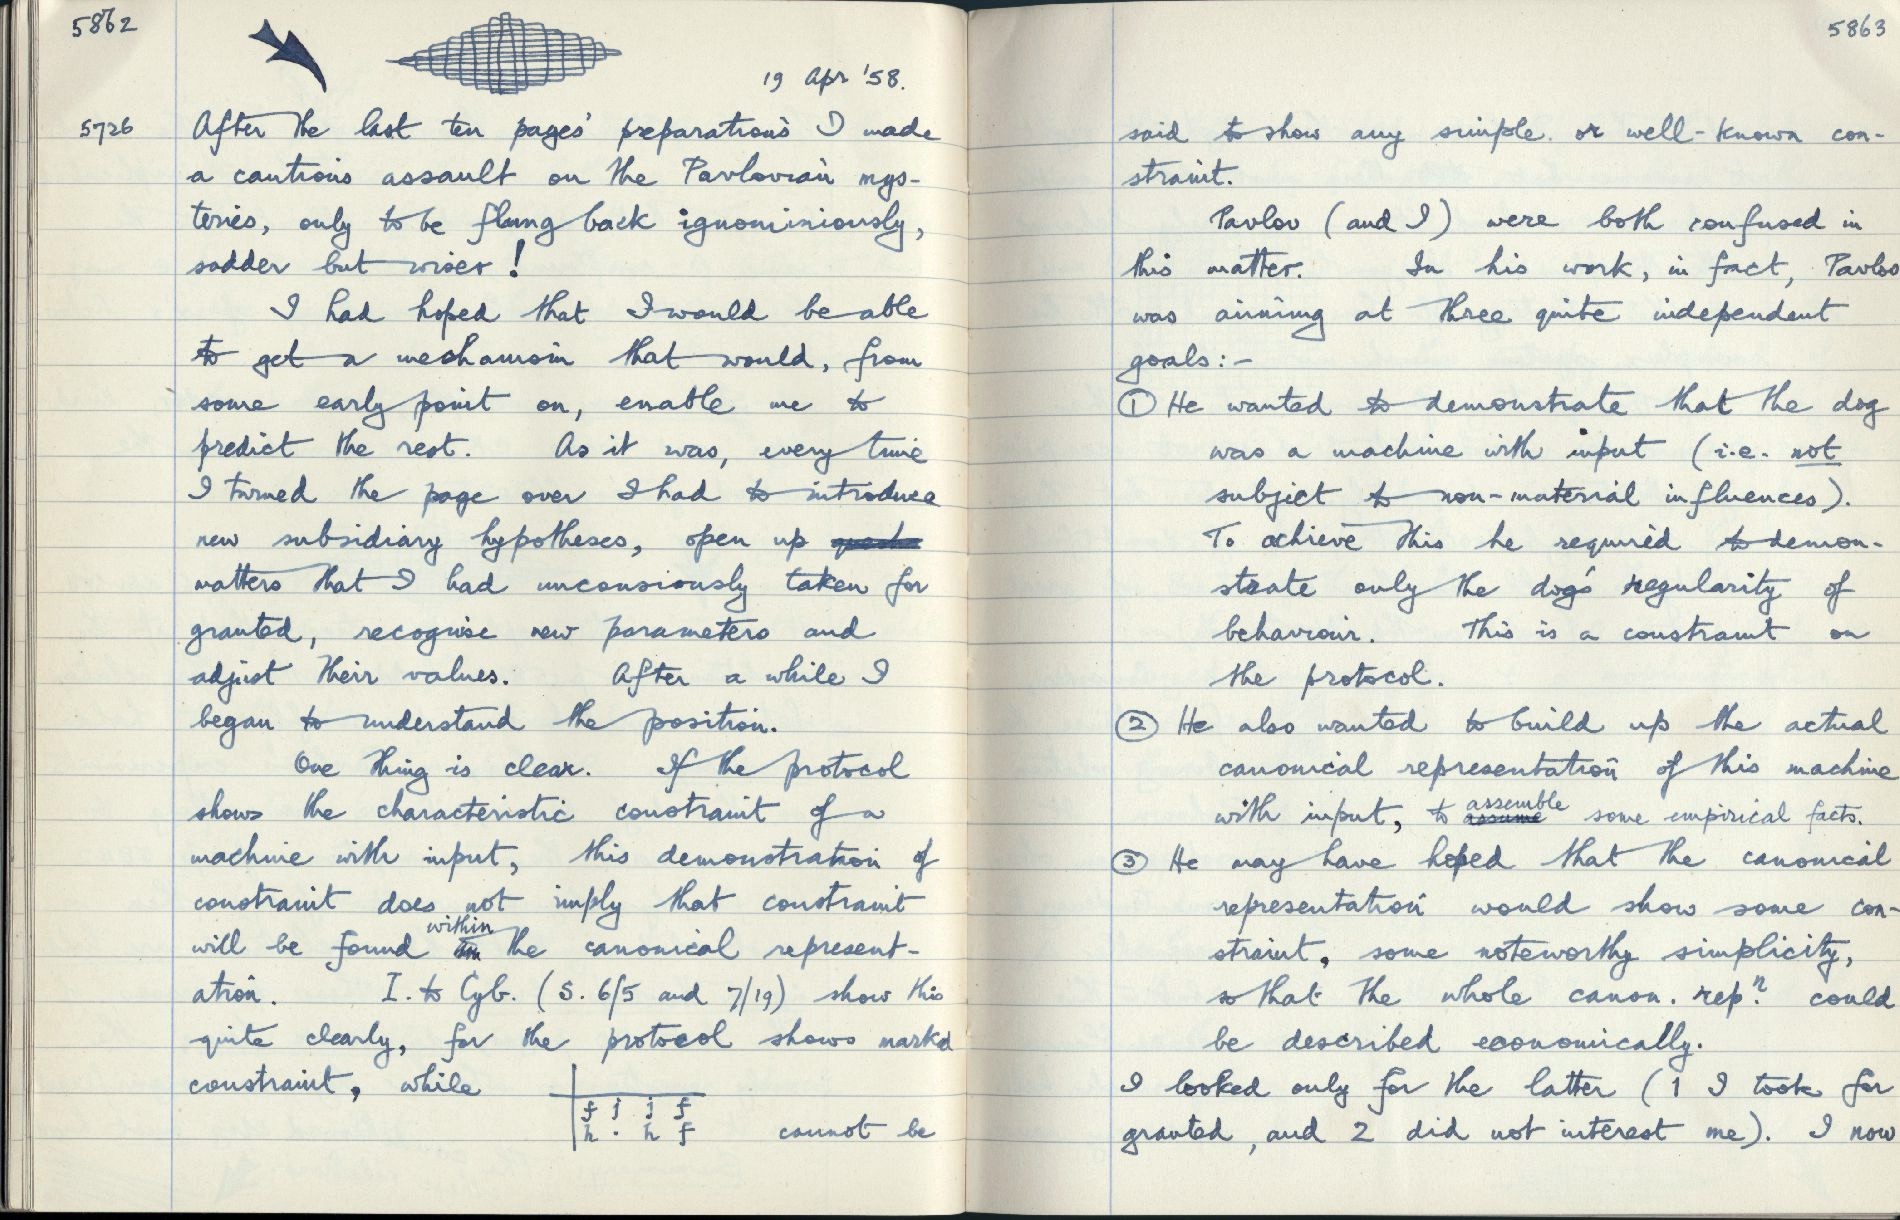 5862
19 Apr '58.
5726 After the last ten pages' preparations I made
a cautious assault on the Pavlovian mys-
teries, only to be flung back ignominiously,
sadder but wiser!
I had hoped that I would be able
to get a mechanism that would, from
some early point on, enable me to
predict the rest. As it was, every time
I turned the page over I had to introduce
new subsidiary hypotheses, open up
matters that I had unconsiously taken for
granted, recognise new parameters and
adjust their values. After a while I
began to understand the position.
One thing is clear. If the protocol
shows the characteristic constraint of a
machine with input, this demonstration of
constraint does not imply that constraint
will be found within the canonical represent-
ation. I. to Cyb. (S. 6/5 and 7/19) show this
quite clearly, for the protocol shows marked
constraint, while
f j j f
h . h f cannot be
5863
said to show any simple or well-known con-
straint.
Pavlov (and I) were both confused in
this matter. In his work, in fact, Pavlov
was aiming at three quite independent
goals:-
① He wanted to demonstrate that the dog
was a machine with input (i.e. not
subject to non-material influences).
To achieve this he required to demon-
strate only the dog's regularity of
behaviour. This is a constraint on
the protocol.
② He also wanted to build up the actual
canonical representation of this machine
with input, to assemble some empirical facts.
③ He may have hoped that the canonical
representation would show some con-
straint, some noteworthy simplicity,
so that the whole canon. repⁿ. could
be described economically.
I looked only for the latter (1 I took for
granted, and 2 did not interest me). I now